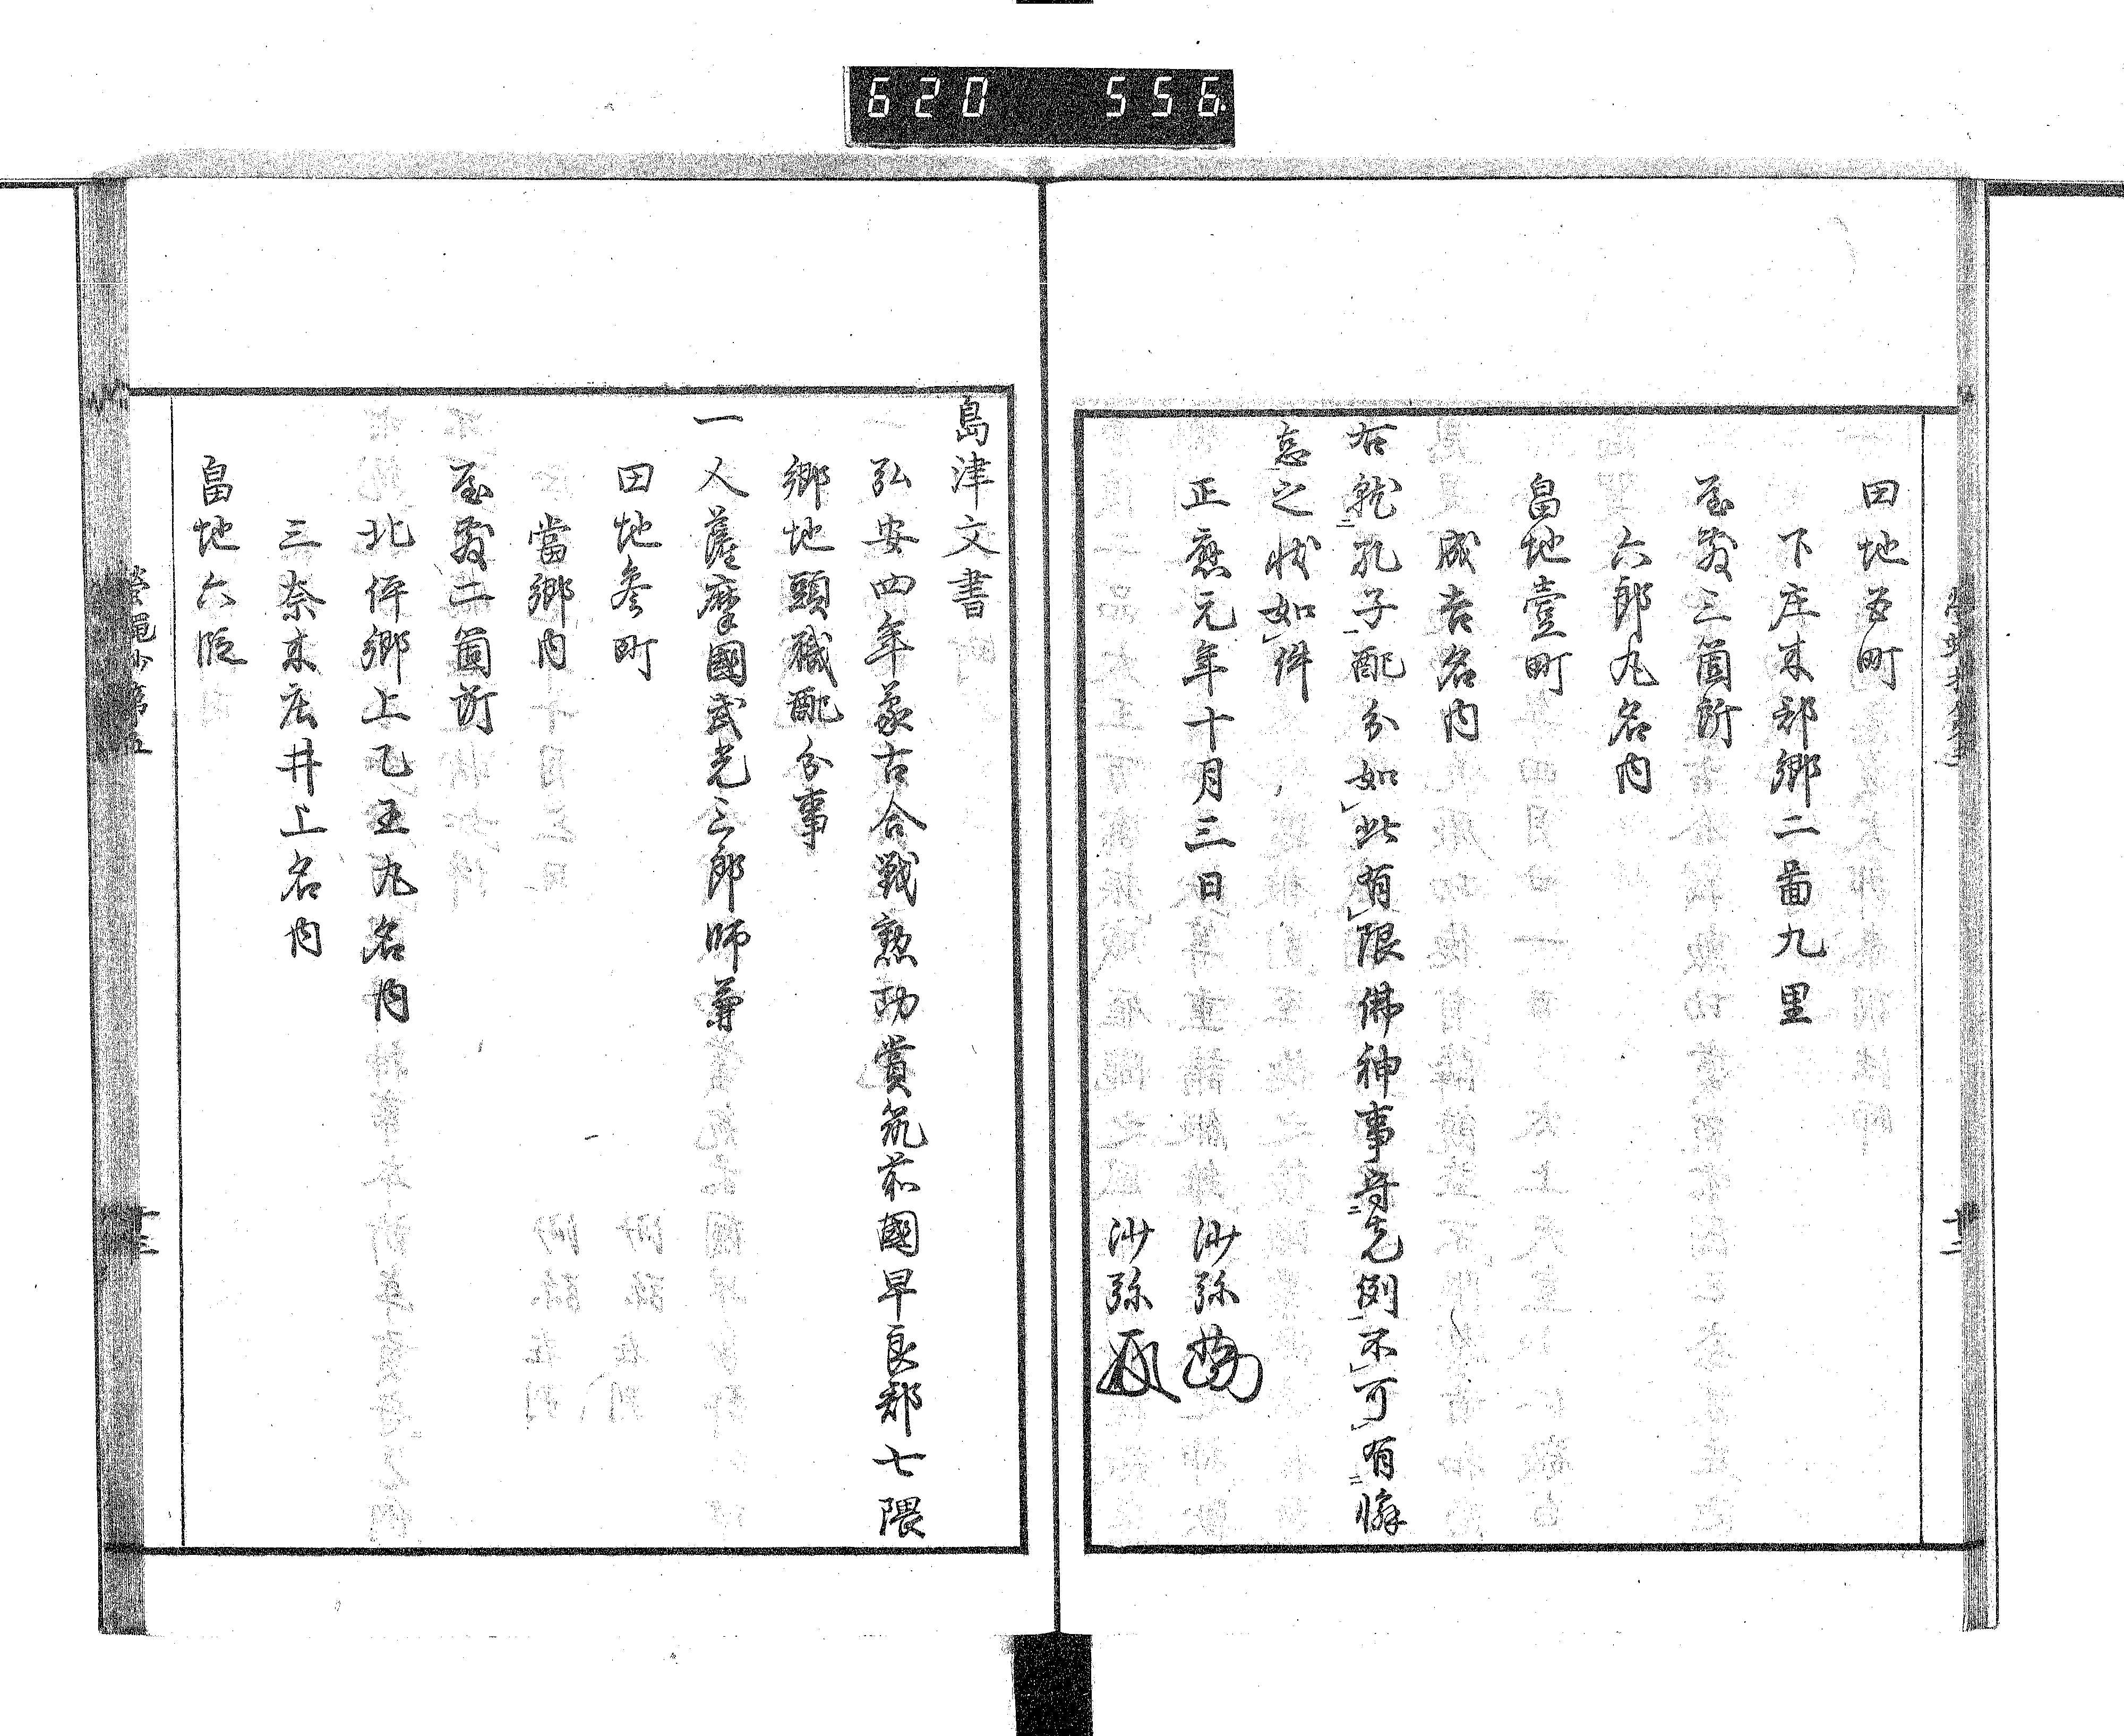 620 556
田地五町
下庄東郷二啚九里
屋敷三箇所
六郎丸名内
畠地壹町
成吉名内
右就孔子配分如此有限佛神事守先例不可有懈
怠之状如件
正應元年十月三日
沙弥
沙弥
十二
島津文書
弘安四年蒙古合戦勲功賞筑前國早良郡七隈
郷地頭職配分事
一人薩摩國武光三郎師兼
田地参町
當郷内
屋敷二箇所
北伴郷上乙王丸名内
三奈木庄井上名内
畠地六段
螢蠅抄第五
十三